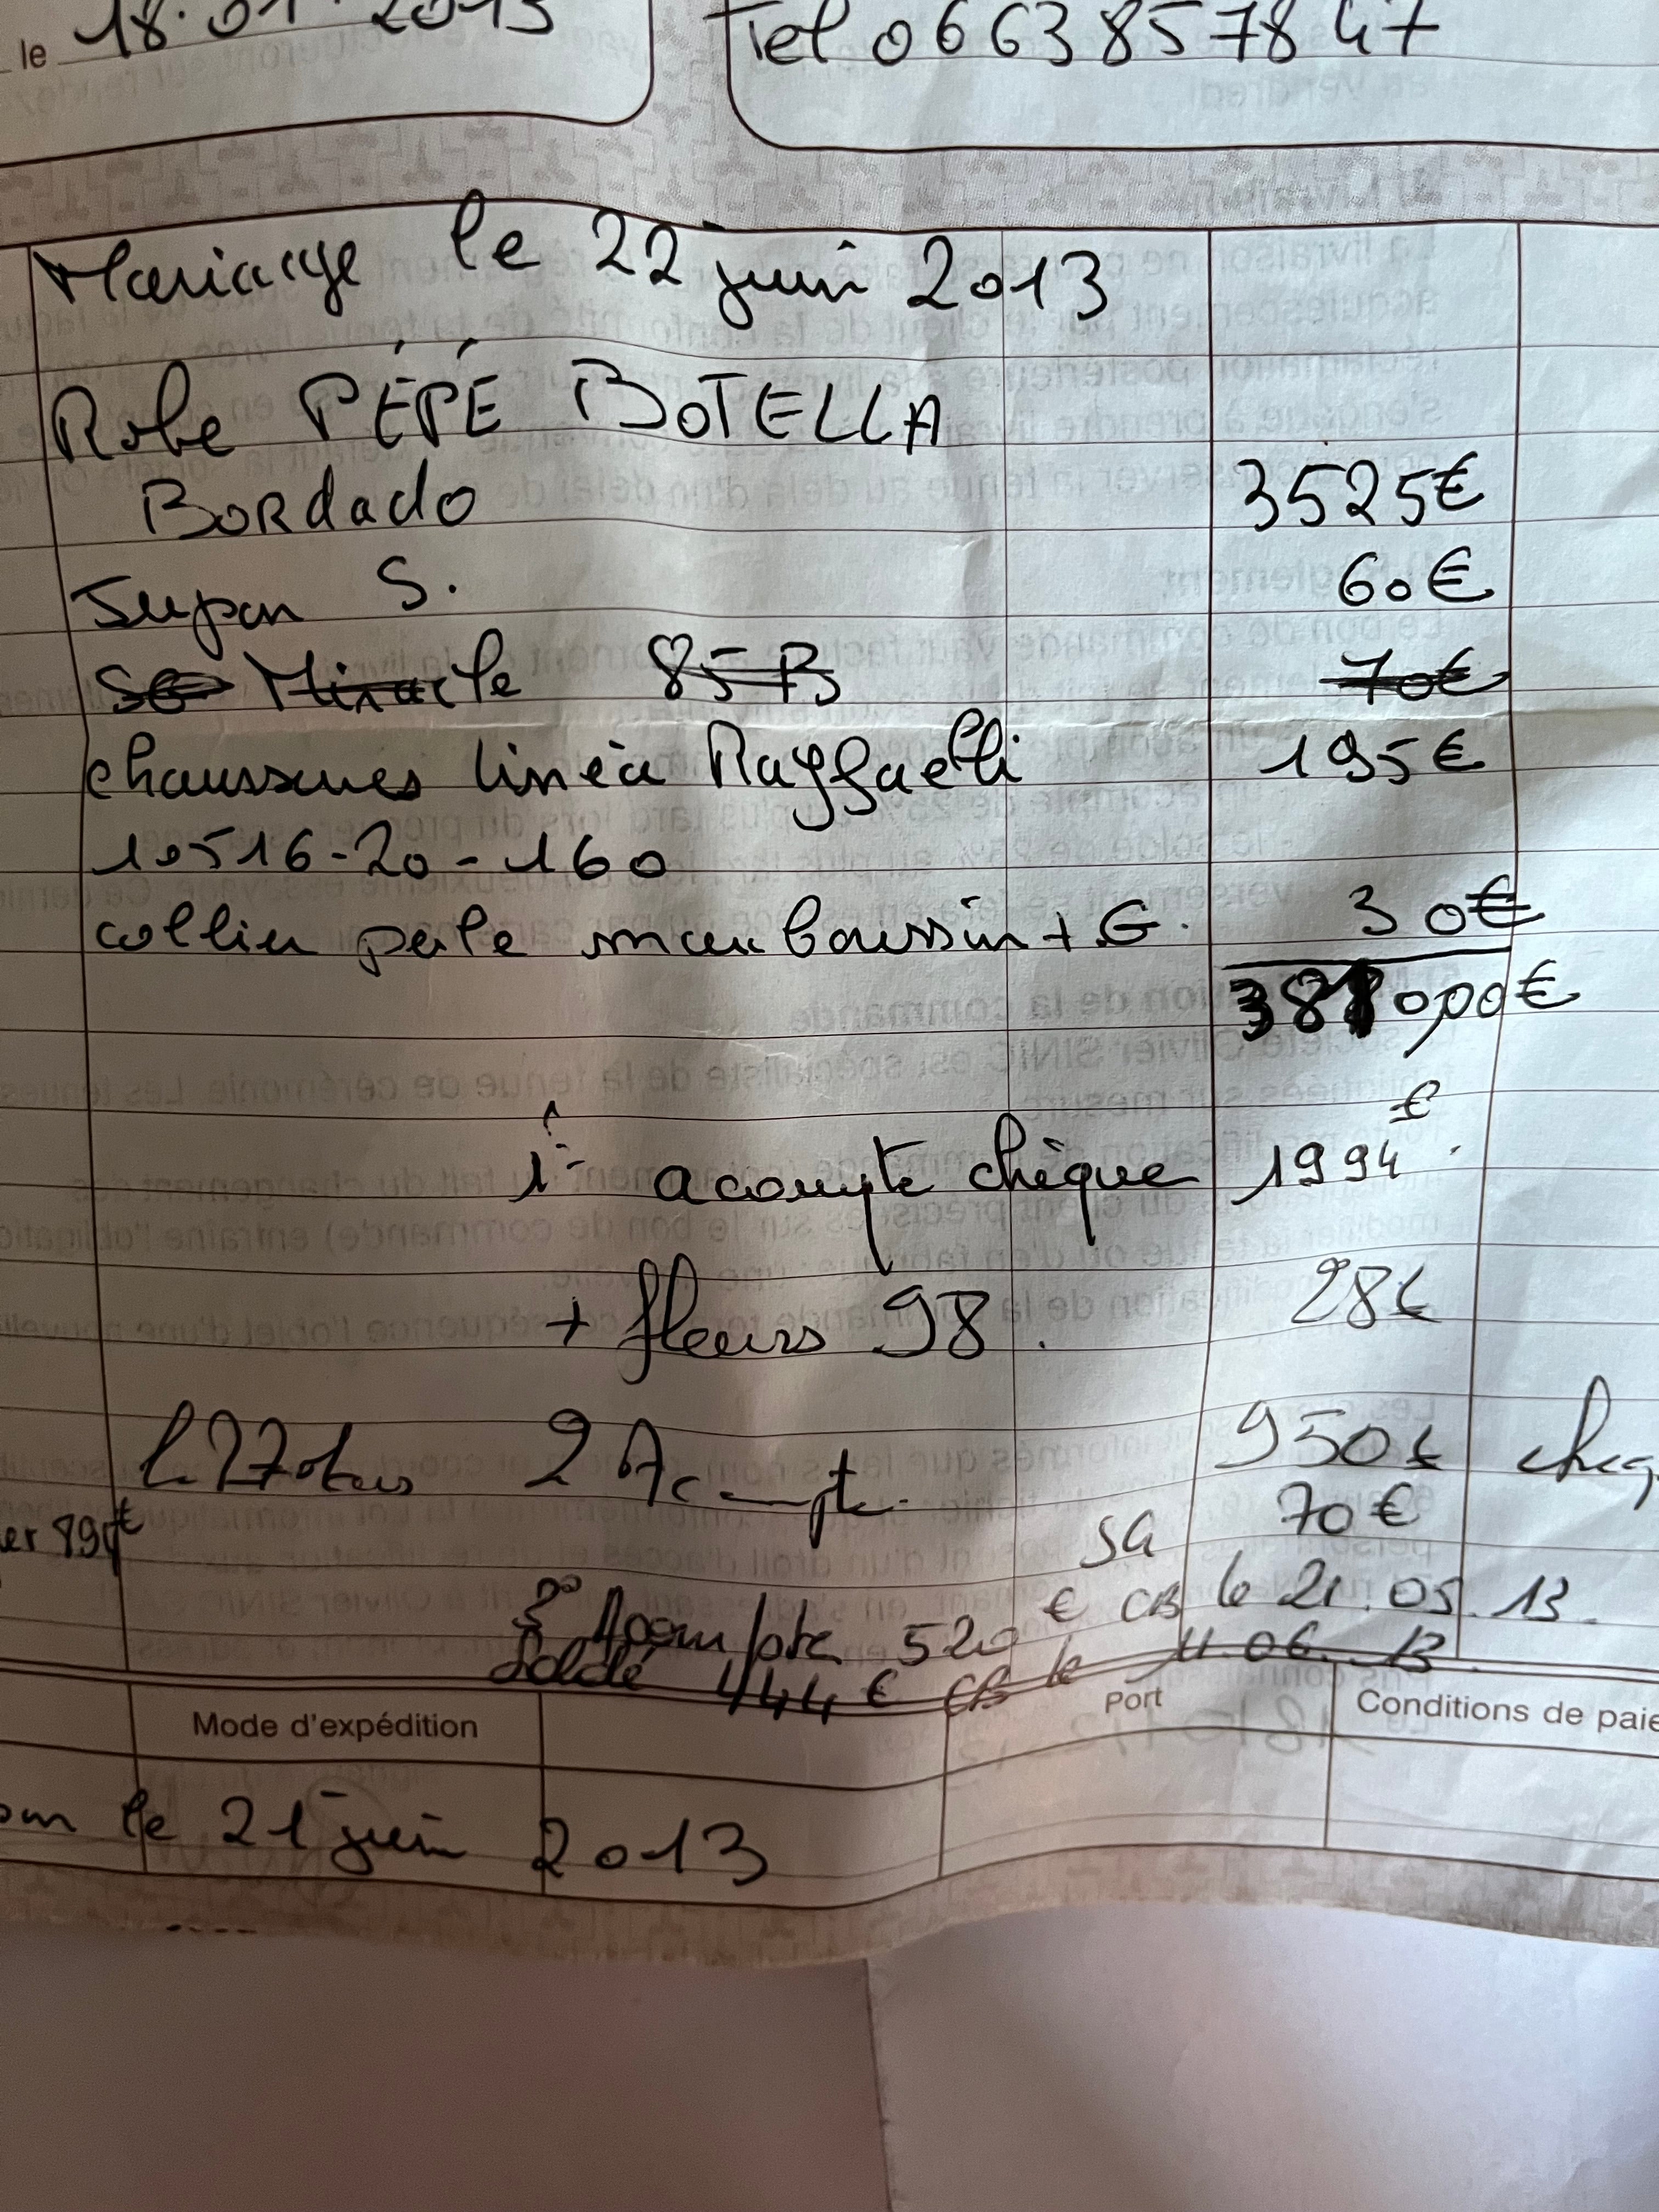 le 18.01.2013
Tel 0663857847
Mariage le 22 juin 2013
Robe PÉPÉ BOTELLA
Bordado 3525€
Jupon S. 60€
Miracle 85 B 70€
chaussures linéa Raffaelli 195€
10516-20-160
collier perle mauboussin + G. 30€
3810,00€
1er acompte chèque 1994€
+ fleurs 98. 28€
2 Acompte 950€ cheq
SG 70€
er 894€
3° Acompte 520 € CB le 21.05.13.
Soldé 444 € CB le 11.06.13
Mode d'expédition Port Conditions de paie
le 21 juin 2013